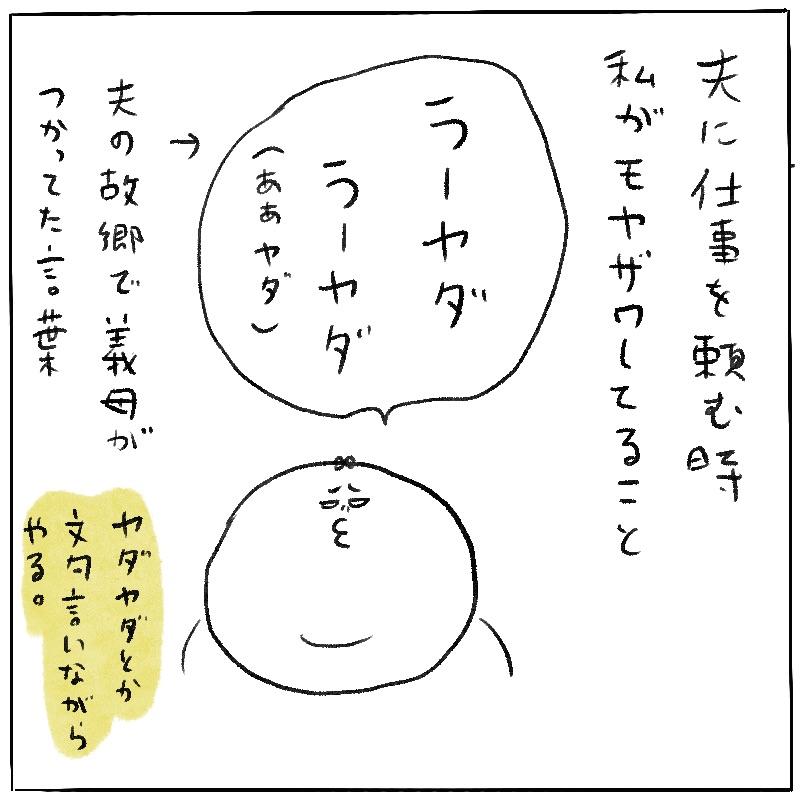 夫に仕事を頼む時
私がモヤザワしてること
ラーヤダ
ラーヤダ
(ああヤダ)
→
夫の故郷で義母が
つかってた言葉
ヤダヤダとか
文句言いながら
やる。